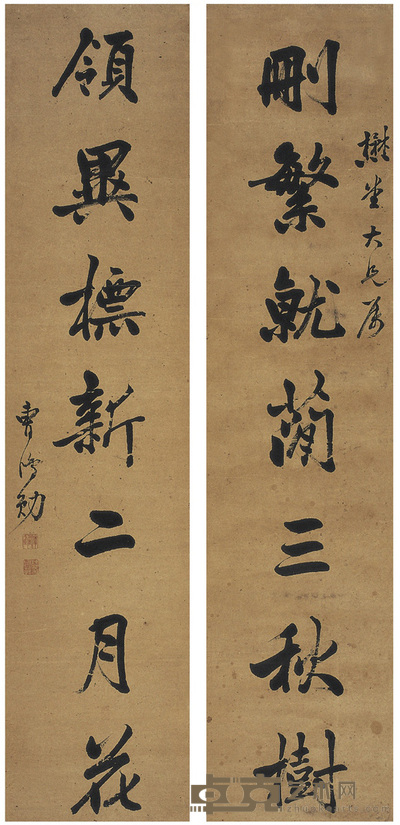 懋堂大兄属
刪繁就蕳三秋樹
領異標新二月花
曹鴻勛